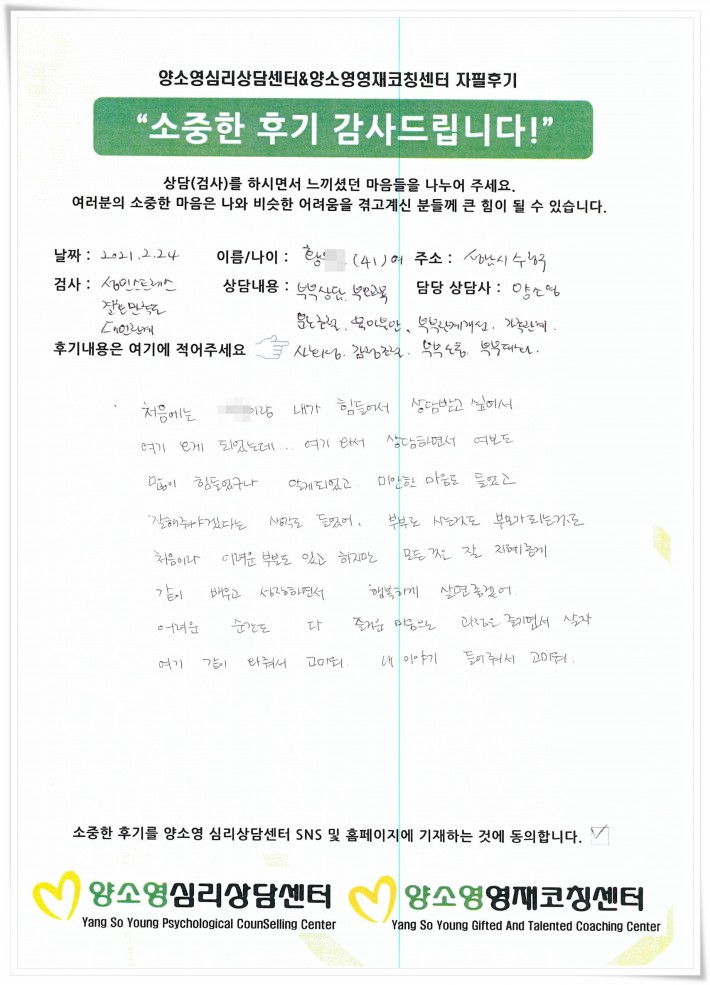 양소영심리상담센터&양소영영재코칭센터 자필후기
"소중한 후기 감사드립니다!"
상담(검사)를 하시면서 느끼셨던 마음들을 나누어 주세요.
여러분의 소중한 마음은 나와 비슷한 어려움을 겪고계신 분들께 큰 힘이 될 수 있습니다.
날짜 : 2021.2.24 이름/나이 : 황 (41) 여 주소 : 성남시 수정구
검사 : 성인스트레스 상담내용 : 부부상담, 부모교육 담당 상담사 : 양소영
결혼만족도 부부관계개선, 가족관계.
대인관계
후기내용은 여기에 적어주세요 사회성, 감정조절, 부부소통, 부부대화.
처음에는 이랑 내가 힘들어서 상담받고 싶어서
여기 오게 되었는데... 여기 와서 상담하면서 여보도
많이 힘들었구나 알게되었고. 미안한 마음도 들었고
잘해줘야겠다는 생각도 들었어. 부부로 사는것도 부모가 되는것도
처음이라 어려운 부분도 있고 하지만 모든 것을 잘 지혜롭게
같이 배우고 성장하면서 행복하게 살면좋겠어.
어려운 순간도 다 즐거운 마음으로 과정을 즐기면서 살자
여기 같이 와줘서 고마워. 내 이야기 들어줘서 고마워.
소중한 후기를 양소영 심리상담센터 SNS 및 홈페이지에 기재하는 것에 동의합니다.
양소영심리상담센터 양소영영재코칭센터
Yang So Young Psychological CounSelling Center Yang So Young Gifted And Talented Coaching Center